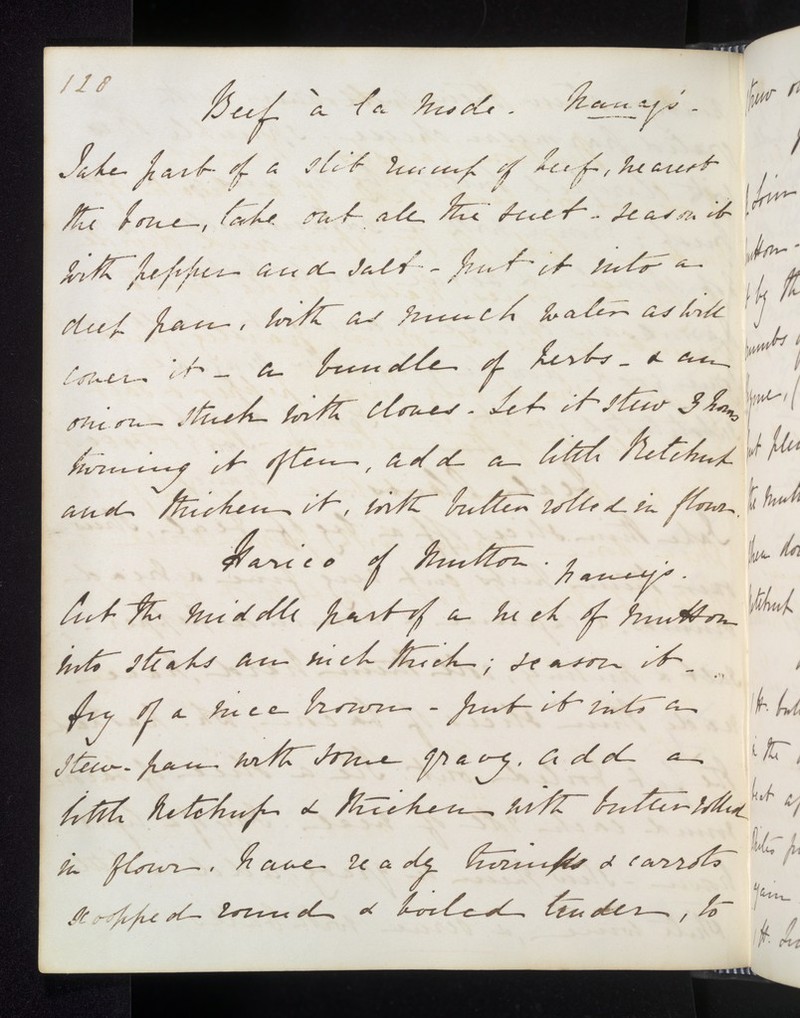 128
Beef à la Mode. Nancy's.
Take part of a slit rump of beef, nearest
the bone, take out all the suet - season it
with pepper and salt - put it into a
deep pan, with as much water as will
cover it - a bundle of herbs - & an
onion stuck with cloves. Let it stew 3 hours
turning it often, add a little Ketchup
and thicken it, with butter rolled in flour.
Harico of Mutton. Nancy's.
Cut the middle part of a neck of mutton
into steaks an inch thick; season it -
fry of a nice brown - put it into a
stew-pan with some gravy. add a
little Ketchup & thicken with butter rolled
in flour. have ready turnips & carrots
scopped round & boiled tender, to